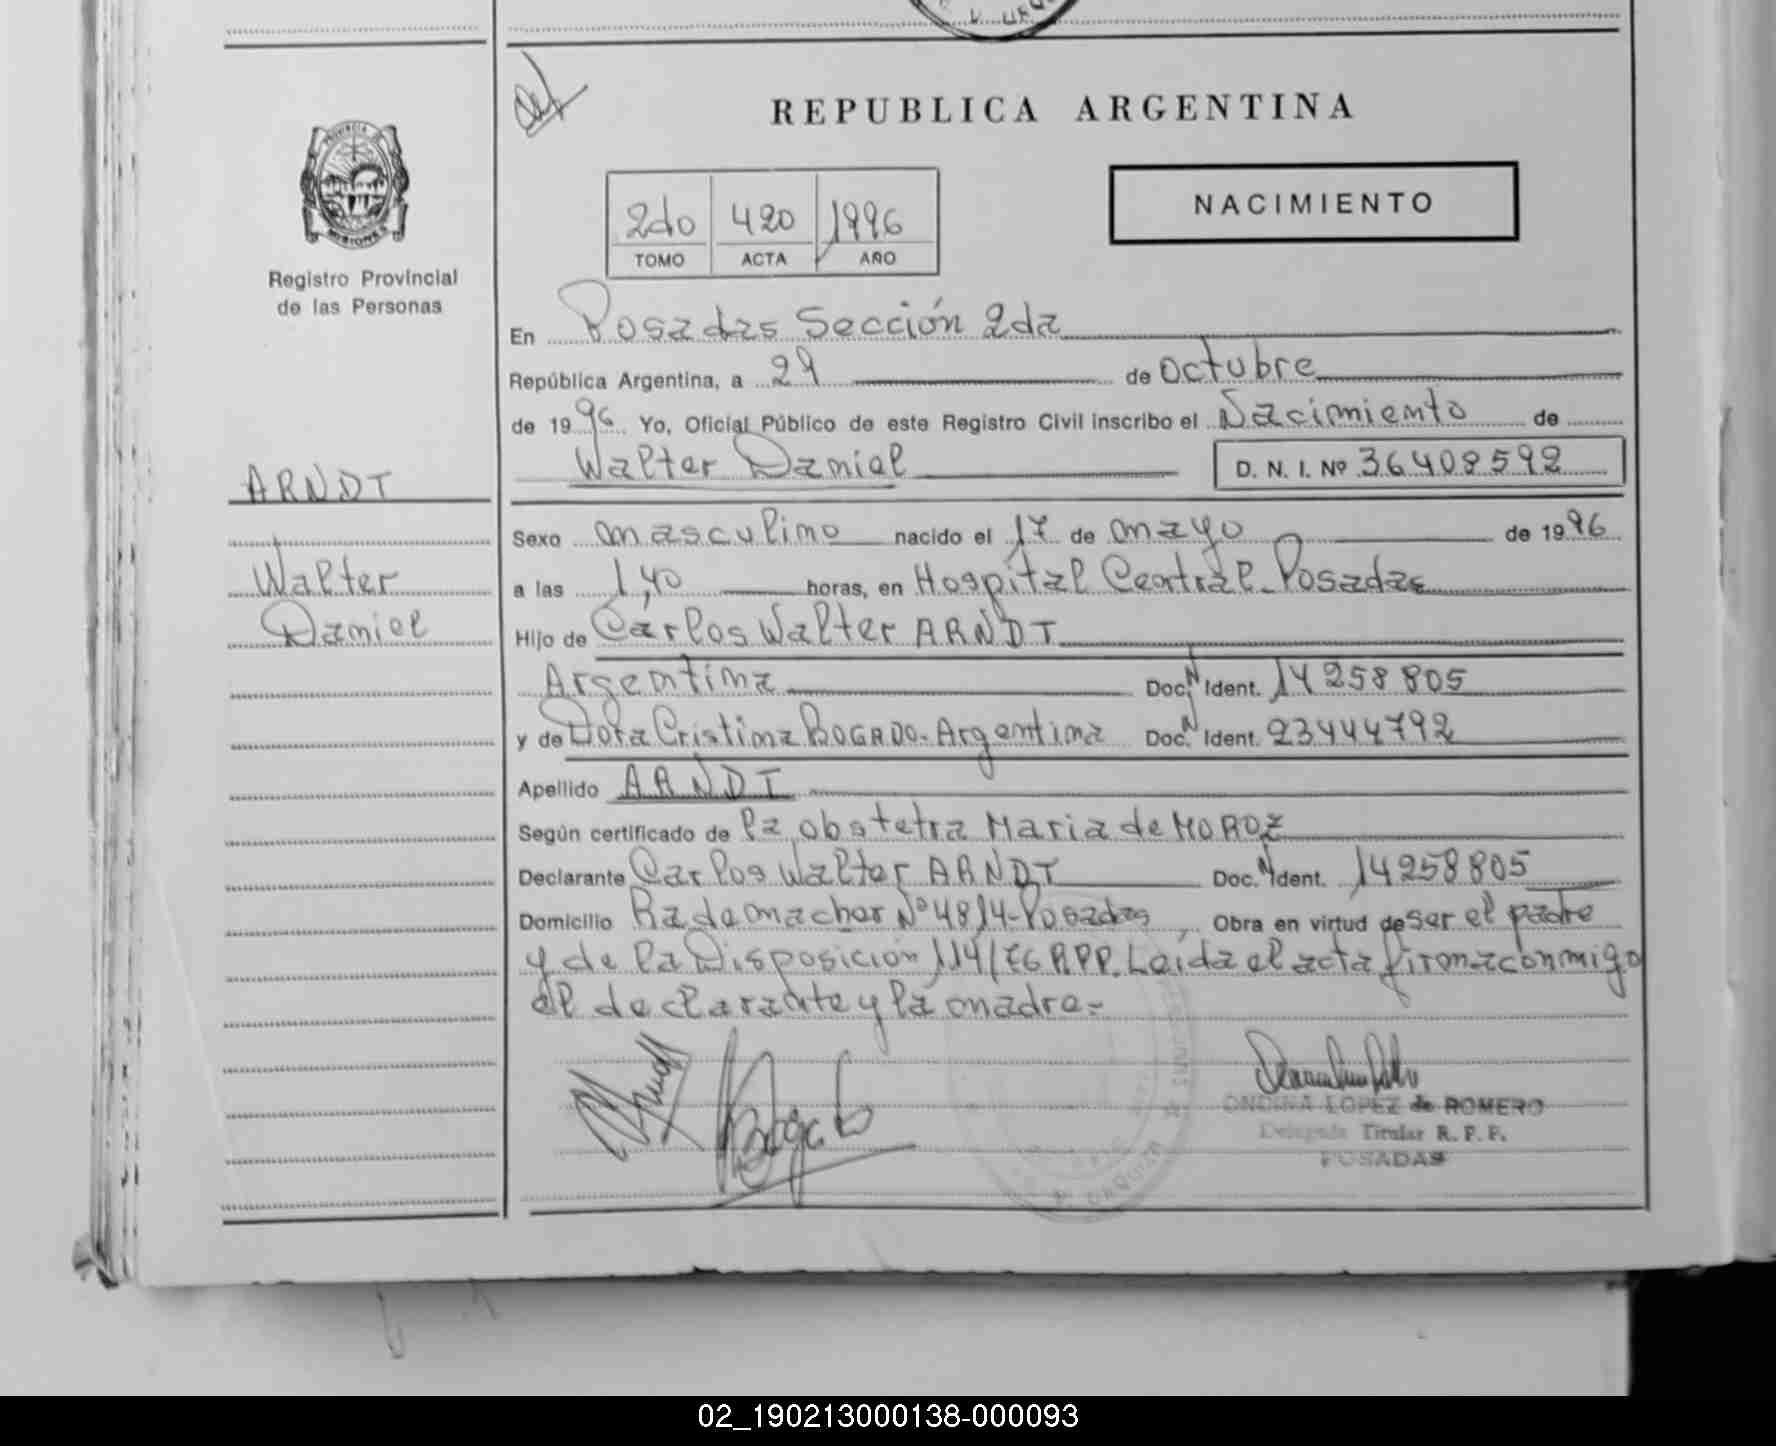 REPUBLICA ARGENTINA
NACIMIENTO
2do 420 1996
TOMO ACTA AÑO
Registro Provincial
de las Personas
En Posadas Sección 2da
República Argentina, a 29 de octubre
de 1996 Yo, Oficial Público de este Registro Civil inscribo el Nacimiento de
Walter Daniel D. N. I. Nº 36408592
ARNDT
Walter
Daniel
Sexo masculino nacido el 17 de mayo de 1996
a las 1,40 horas, en Hospital Central-Posadas
Hijo de Carlos Walter ARNDT
Argentina Doc. N Ident. 14258805
y de Dora Cristina BOGADO-Argentina Doc. N Ident. 23444792
Apellido ARNDT
Según certificado de la obstetra Maria de MOROZ
Declarante Carlos Walter ARNDT Doc. N Ident. 14258805
Domicilio Rademacher Nº 4814-Posadas, Obra en virtud de ser el padre
y de la Disposición 114/76 RPP. Leída el acta firma conmigo
el declarante y la madre.-
ONDINA LOPEZ de ROMERO
Delegada Titular R. P. P.
POSADAS
02_190213000138-000093